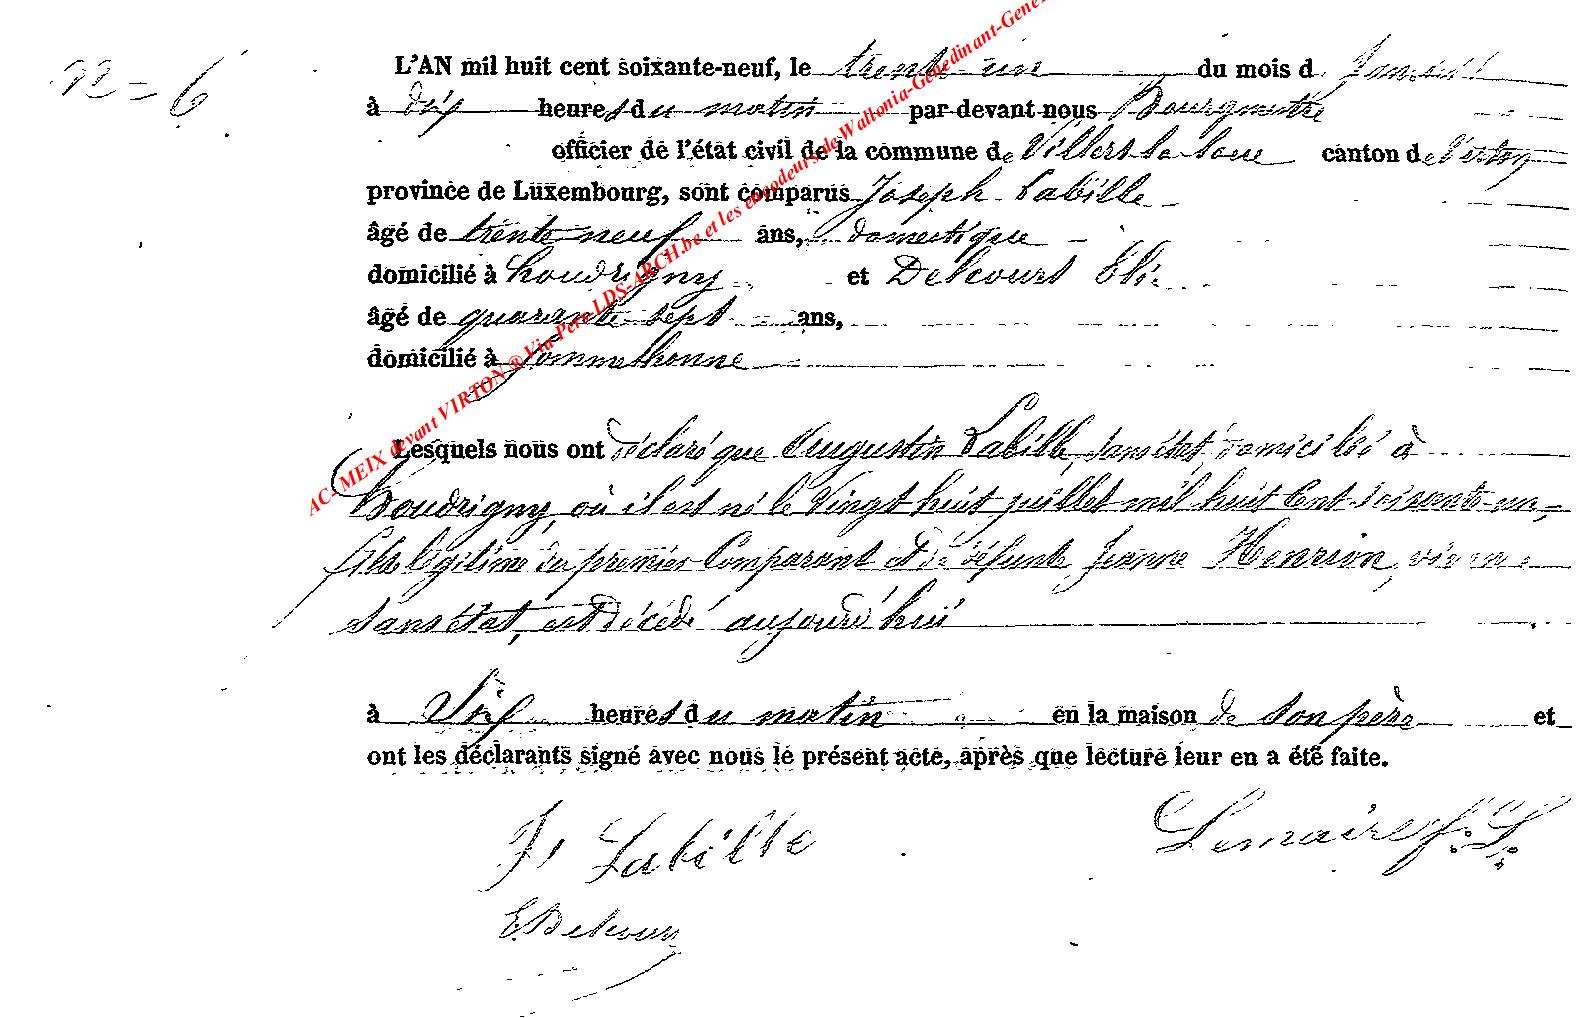 N = 6
L'AN mil huit cent soixante-neuf, le trente un du mois d Janvier
à dix heures du matin par devant nous Bourgmestre
officier de l'état civil de la commune de Villers la loue canton de Virton
province de Luxembourg, sont comparus Joseph Labille
âgé de trente neuf ans, domestique
domicilié à houdrigny et Delcourt Eli
âgé de quarante sept ans,
domicilié à Sommethonne
Lesquels nous ont déclaré que Augustin Labille, sans état, domicilié à
houdrigny, où il est né le Vingt huit juillet mil huit Cent soixante-un,
fils légitime du premier Comparant et de défunte Jeanne Henrion, vivan
sans état, est décédé aujourd'hui
à Six heures du matin en la maison de son père et
ont les déclarants signé avec nous le présent acte, après que lecture leur en a été faite.
Js Labille Lemaire f. L.
E. Delcour
AC- MEIX devant VIRTON ® Via Père LDS-ARCH.be et les encodeurs de Wallonia-Genedinant-Gene